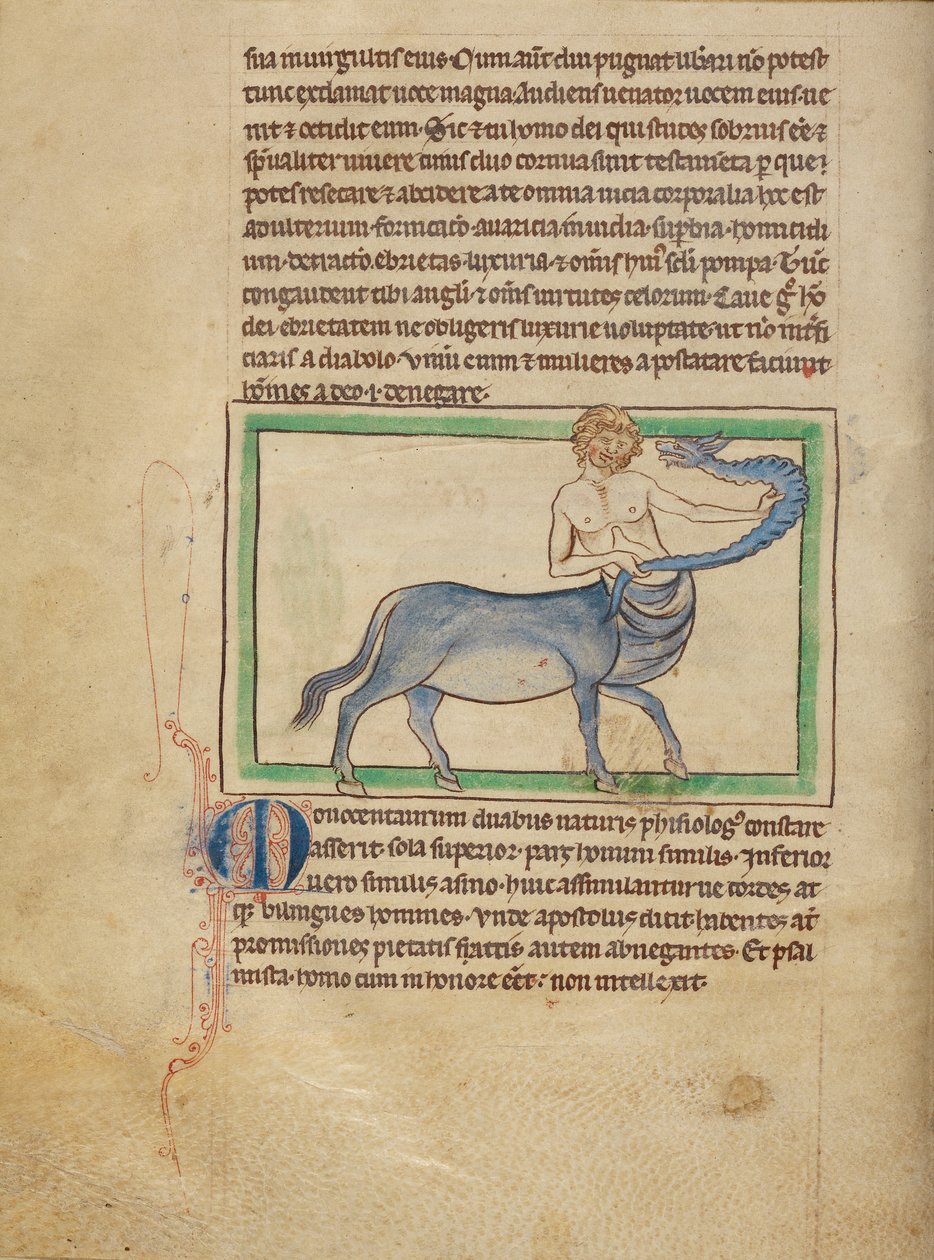 sua in uirgultis eius. Cum aut̄ diu pugnat libari nō potest
tunc exclamat uoce magna. Audiens uenator uocem eius. ue
nit ⁊ occidit eum. Sic ⁊ tu homo dei qui studes sobrius eē ⁊
sp̄ualiter uiuere cuius duo cornua sunt testam̄ta ꝑ que
potes resecare ⁊ abcidere a te omnia uicia corporalia hoc est
adulterium. fornicatō. auaricia. inuidia. suꝑbia. homicidi
um. detractō. ebrietas. luxuria. ⁊ om̄is huı᷒ sc̄li pompa. Tūc
congaudent tibi angl̄i. ⁊ om̄s uirtutes celorum. Caue gͦ hō
dei. ebrietatem ne obligeris luxurie uoluptate. ut nō int̄fi
ciaris a diabolo. Vinū enim ⁊ mulieres apostatare faciunt
hōines a deo .i. denegare.
Onocentaurum duabus naturis phisiologꝰ constare
asserit. sola superior. pars homini similis. Inferior
uero similis asino. huic assimilantur uecordes at
qꝫ bilingues homines. Vnde apostolus dicit. habentes aūt
promissiones pietatis factis autem abnegantes. Et psal
mista. homo cum in honore eēt: non intellexit.